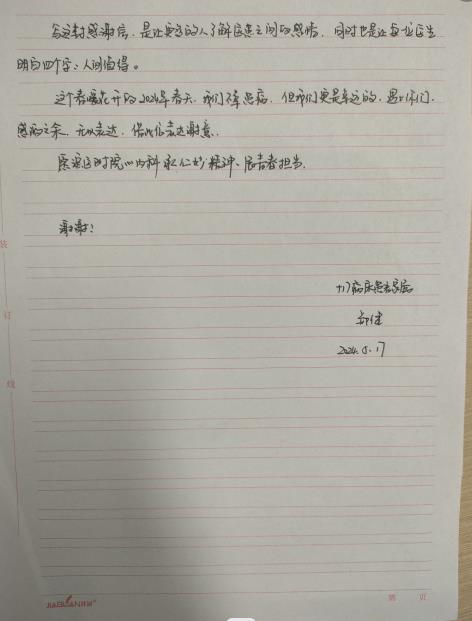 写这封感谢信，是让更多的人了解医患之间的感情，同时也是让每位医生
明白四个字：人间值得。
这个春暖花开的2024年春天，我们不幸患病，但我们更是幸运的，遇上你们，
感动之余，无以表达，借此信表达谢意。
愿 医院心内科永仁妙精神，展青春担当。
谢谢！
17病床患者家属
郑健
2024.5.17
装
订
线
JIAERJIAN
第 页